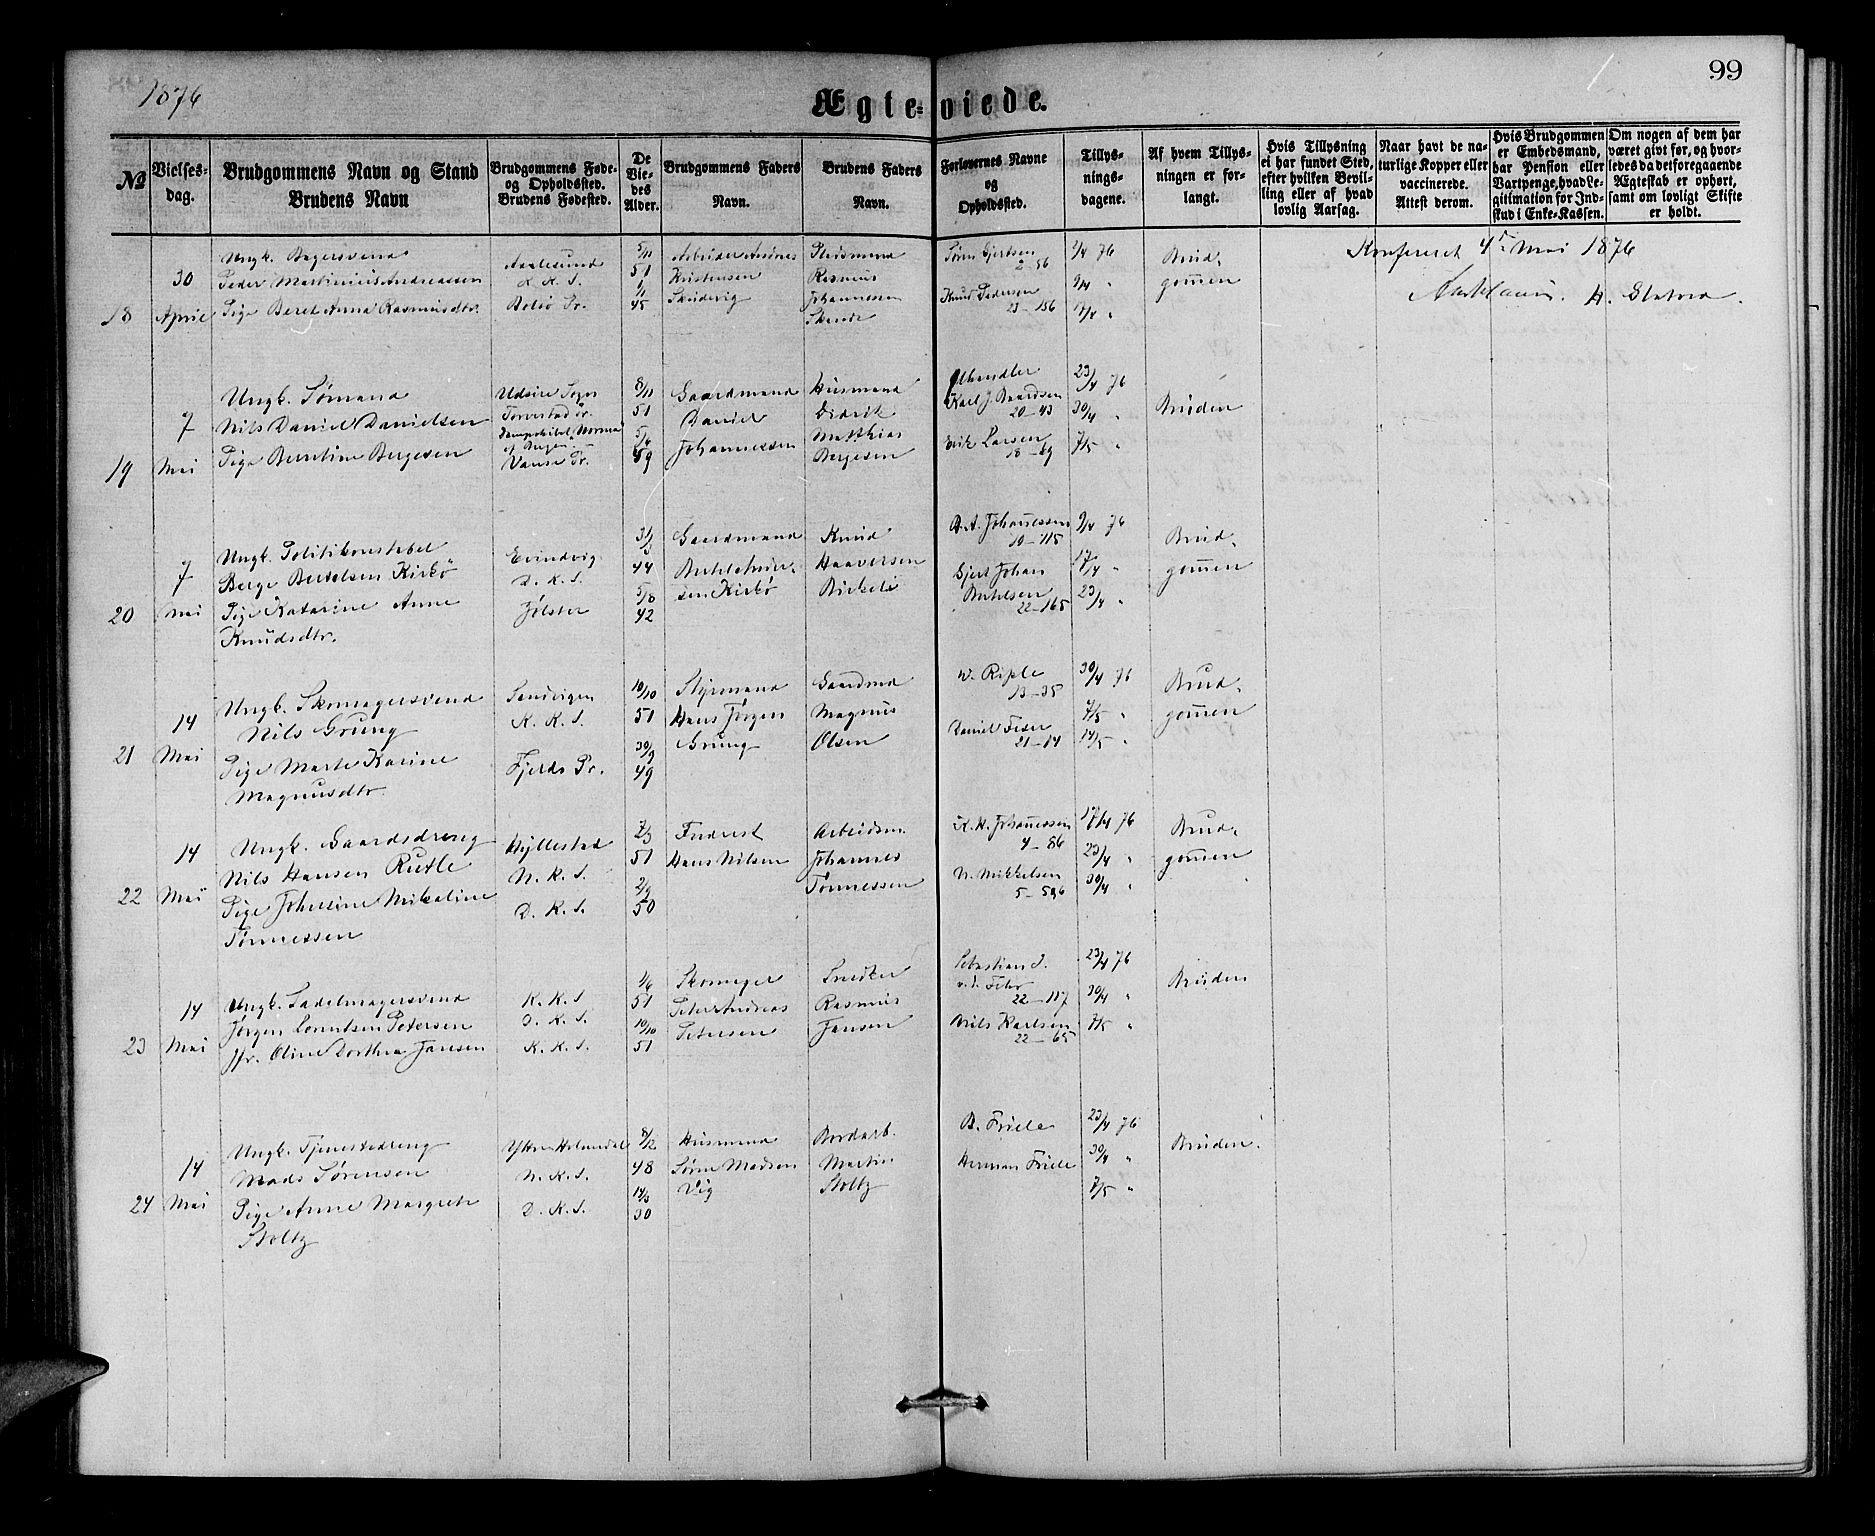 1876
99
Ægteviede.
№
Vielsesdag.
Brudgommens Navn og Stand
Brudens Navn
Brudgommens Føde-
og Opholdssted.
Brudens Fødested.
De
Vie-
des
Alder.
Brudgommens Faders
Navn.
Brudens Faders
Navn.
Forlovernes Navne
og
Opholdssted.
Tillys-
nings-
dagene.
Af hvem Tillys-
ningen er for-
langt.
Hvis Tillysning
ei har fundet Sted,
efter hvilken Bevil-
ling eller af hvad
lovlig Aarsag.
Naar havt de na-
turlige Kopper eller
vaccinerede.
Attest derom.
Hvis Brudgommen
er Embedsmand,
har Pension eller
Vartpenge, hvad Le-
gitimation for Ind-
skud i Enke-Kassen.
Om nogen af dem har
været givt før, og hvor-
ledes da det foregaaende
Ægteskab er ophørt,
samt om lovligt Skifte
er holdt.
18
30
April
Ungk. Bagersvend
Peder Martinius Andreassen
Pige Beret Anna Rasmusdtr.
Aalesund
K. K. S.
Bolsø Pr.
5/11
51
1/1
45
Arbeider
Kristensen
Skudevig
Rasmus
Johannessen
Søren Gjertsen
2-56
Knud Pedersen
23-156
2/4 76
9/4 "
17/4 "
Brud-
gommen
Konfereret 4de Mai 1876
19
7
Mai
Ungk. Sømand
Nils Daniel Danielsen
Pige Berntine Bergesen
Udsire Sogn
Torvestad Pr.
Dampskibet "Norma"
af Bergen
Vanse Pr.
8/11
51
5/6
49
Gaardmand
Daniel
Johannessen
Husmand
Didrik
Matthias
Bergesen
Karl J. Baardsen
20-43
Erik Larsen
18-69
23/4 76
30/4 "
7/5 "
Bruden
20
7
Mai
Ungk. Politikonstabel
Berge Bertelsen Kirkø
Pige Katarine Anne
Knudsdtr.
Evindvig
D. K. S.
Jølster
31/3
44
5/8
42
Gaardmand
sen Kirkø
Knud
Haaversen
Birkeli
B. A. Johanessen
10-115
Gjert Johan
Bertelsen
22-165
9/4 76
17/4 "
23/4 "
Brud-
gommen
21
14
Mai
Ungk. Skomagersvend
Nils Grung
Pige Marte Karine
Magnusdtr.
Sandvigen
K. K. S.
Fjerds Pr.
10/10
51
30/9
49
Styrmand
Hans Jørgen
Grung
Gaardmd
Magnus
Olsen
W. Riple
13-35
Daniel Feser
21-14
30/4 76
7/5 "
14/5 "
Brud-
gommen
22
14
Mai
Ungk. Gaardsdreng
Nils Hansen Rutle
Pige Johanne Mikaline
Tønnessen
Hyllestad
N. K. S.
D. K. S.
7/3
51
2/9
50
Hans Nilsen
Arbeidsm.
Johannes
Tønnessen
K. H. Johanessen
4-86
N. Mikkelsen
5-596
17/4 76
23/4 "
30/4 "
Brud-
gommen
23
14
Mai
Ungk. Sadelmagersvend
Jørgen Lorentsen Petersen
Jfr. Oline Dorthea Jansen
K. K. S
D. K. S.
K. K. S.
1/6
51
10/10
51
Skomager
Peter Andreas
Petersen
Snedker
Rasmus
Jansen
Sebastian d.
v. d. Fehr
22-117
Nils Karlsen
22-65
23/4 76
30/4 "
7/5 "
Bruden
24
14
Mai
Ungk. Tjenestedreng
Mads Sørensen
Pige Anne Margrete
Stoltz
Ytre Holmedal
N. K. S.
D. K. S.
8/2
48
14/3
30
Husmand
Søren Madsen
Vig
Bordarb.
Martin
Stoltz
B. Friele
Herman Friele
23/4 76
30/4 "
7/5 "
Bruden.